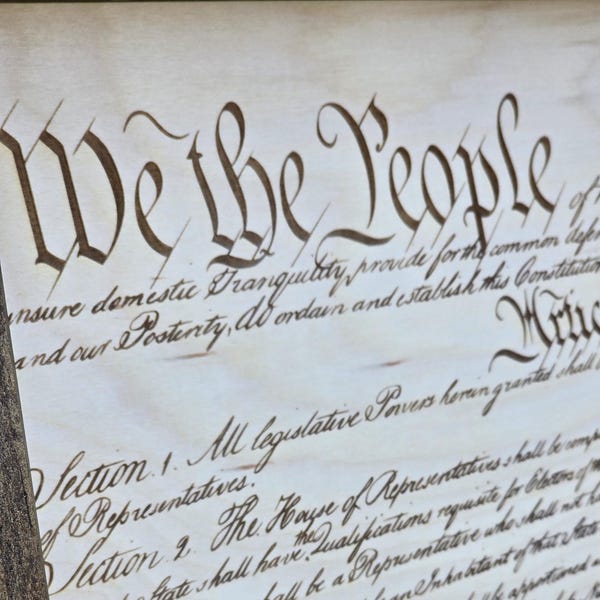 We the People of
insure domestic Tranquility, provide for the common
and our Posterity, do ordain and establish this Constitution
Section. 1. All legislative Powers herein granted shall
of Representatives.
Section. 2. The House of Representatives shall be
State shall have the Qualifications requisite for Electors of
shall be a Representative who shall not
an Inhabitant of that State
shall be apportioned